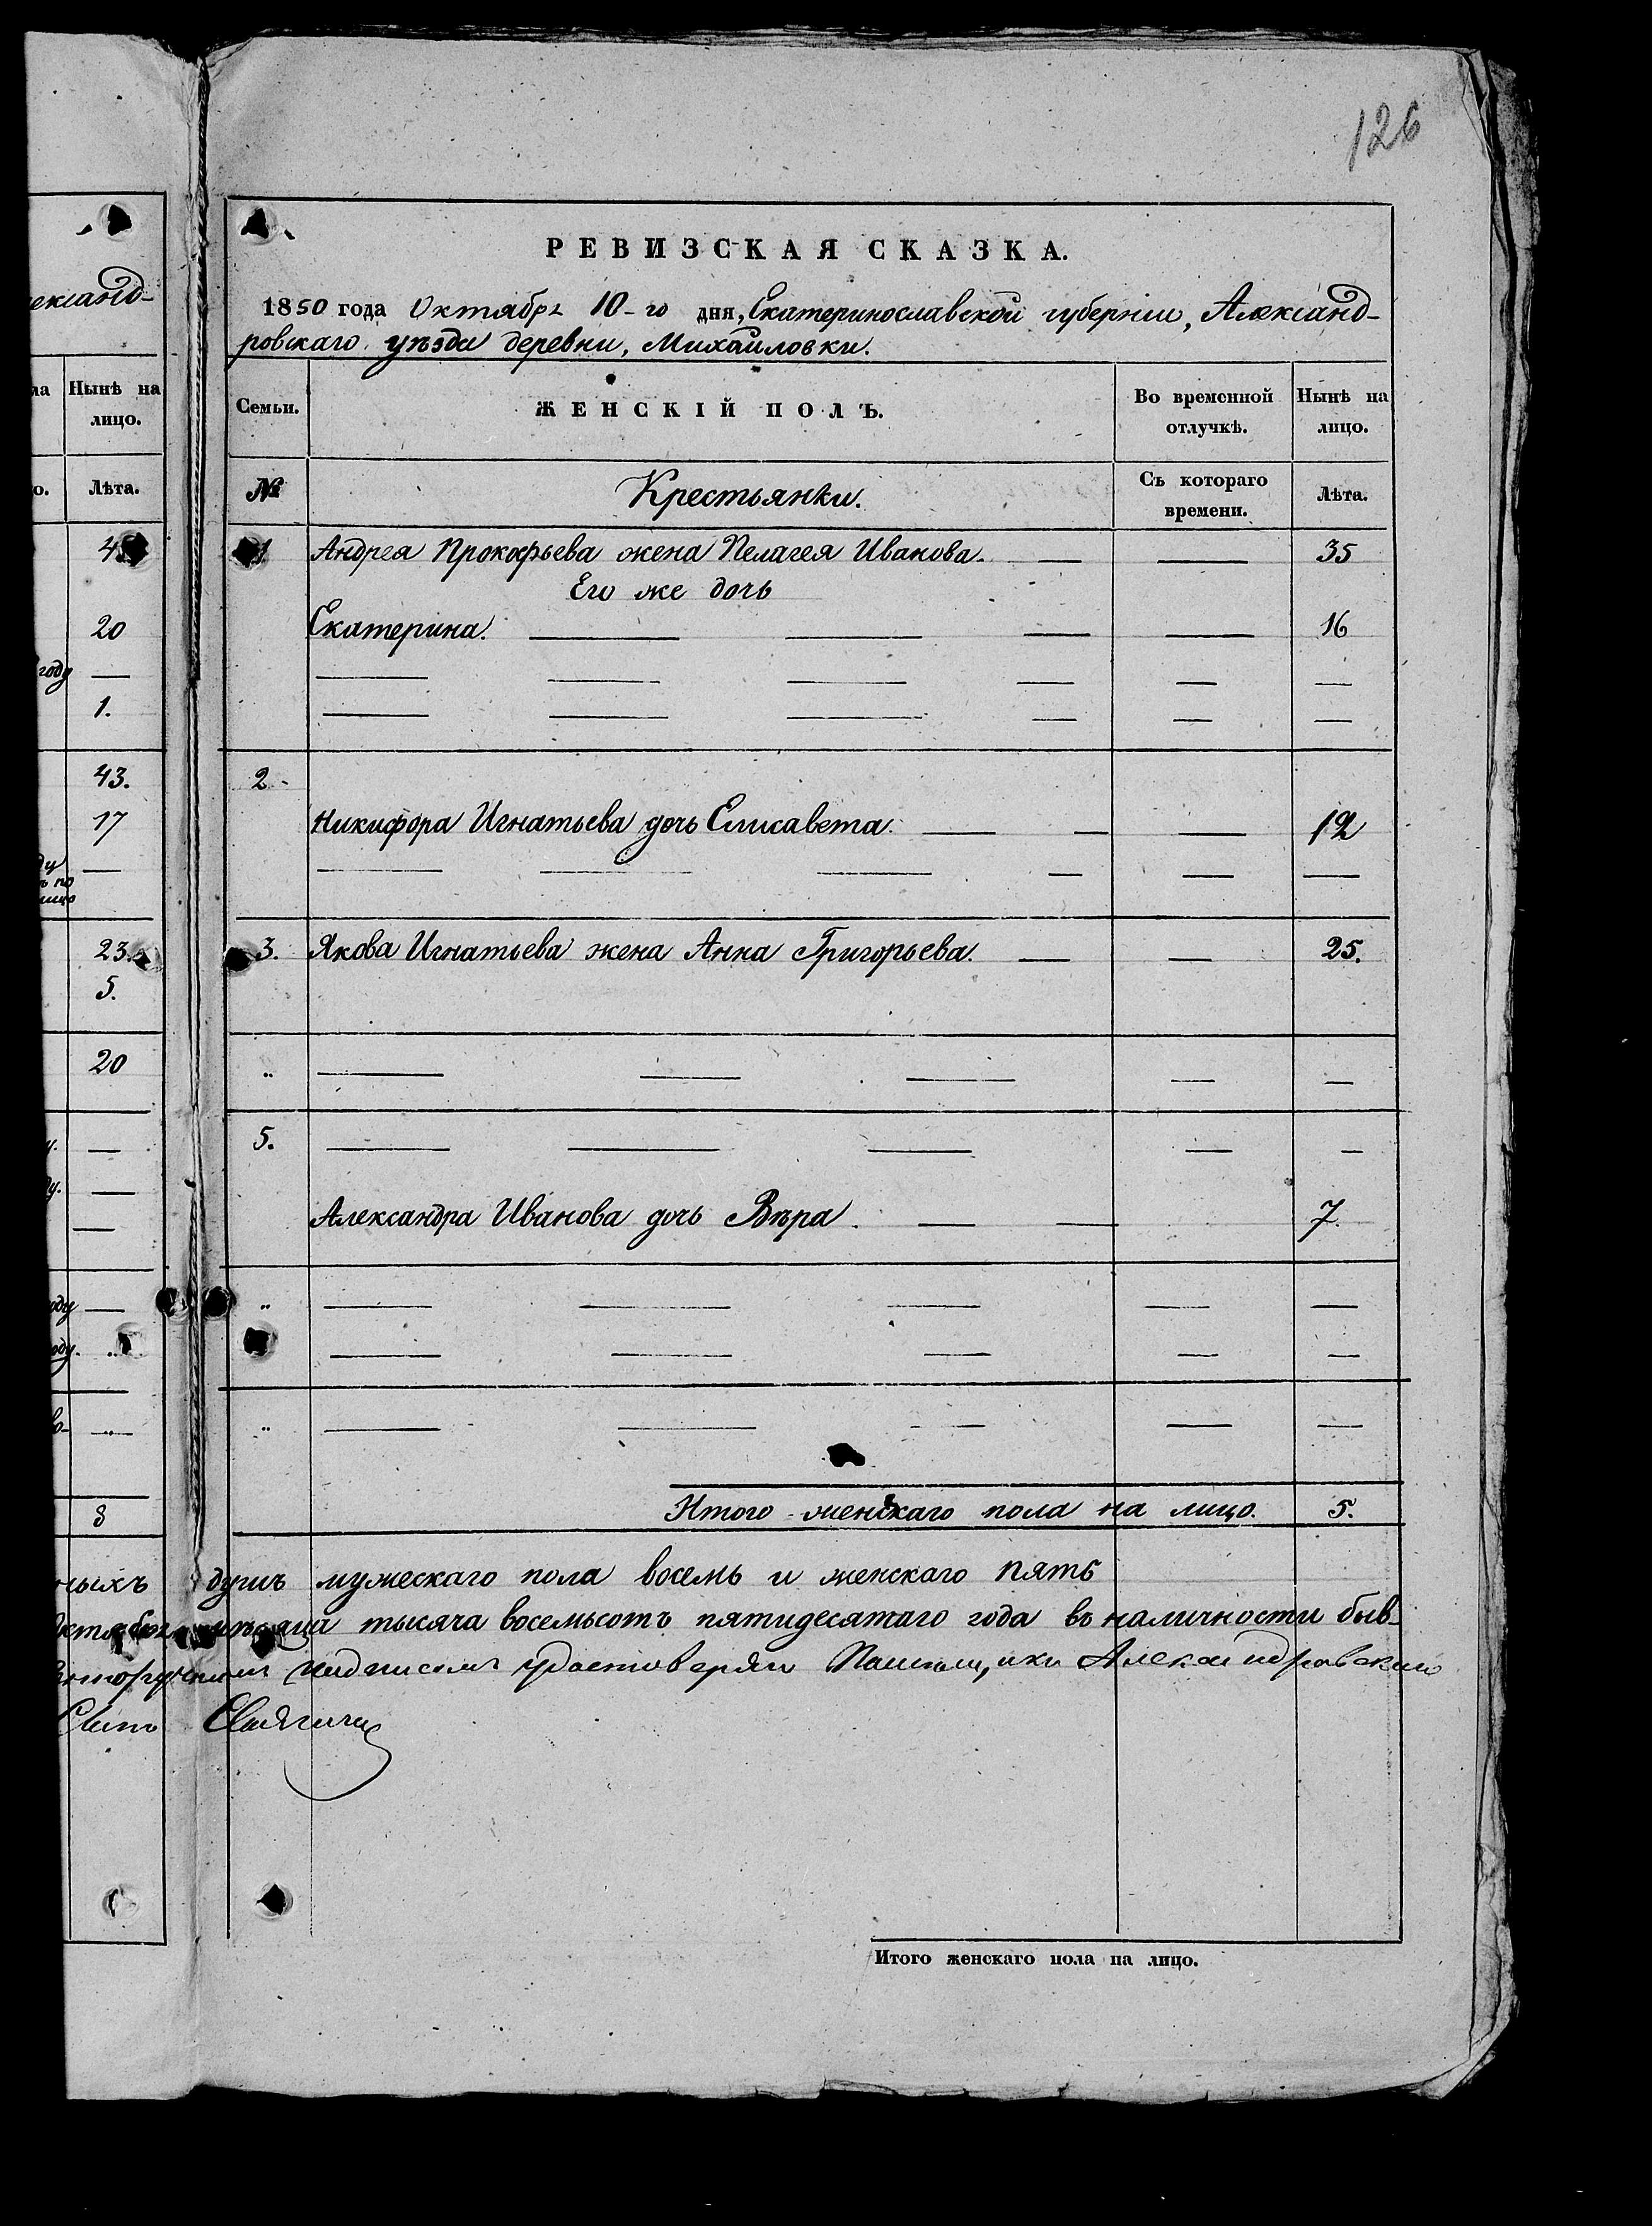 126
ександ-
Нынѣ на
лицо.
Лѣта.
20
году
1.
43.
17
23.
5.
20
8
РЕВИЗСКАЯ СКАЗКА.
1850 года Октября 10-го дня, Екатеринославской губерніи, Александ-
ровскаго уѣзда деревни, Михайловки.
Семьи. ЖЕНСКІЙ ПОЛЪ. Во временной отлучкѣ. Нынѣ на лицо.
№ Крестьянки. Съ котораго времени. Лѣта.
1 Андрея Прокофьева жена Пелагея Иванова. — — 35
Его же дочь
Екатерина. — — — — 16
— — — — — —
— — — — — —
2
Никифора Игнатьева дочь Елисавета. — — — 12
— — — — — —
3. Якова Игнатьева жена Анна Григорьева. — — 25.
„ — — — — —
5. — — — — —
Александра Иванова дочь Вѣра. — — 7.
„ — — — — —
— — — — —
„ — — — — —
Итого женскаго пола на лицо. 5.
ныхъ душъ мужескаго пола восемь и женскаго пять
октября мѣсяца тысяча восемьсотъ пятидесятаго года въ наличности быв-
подписомъ удостовѣряю Александровскаго
Итого женскаго пола на лицо.